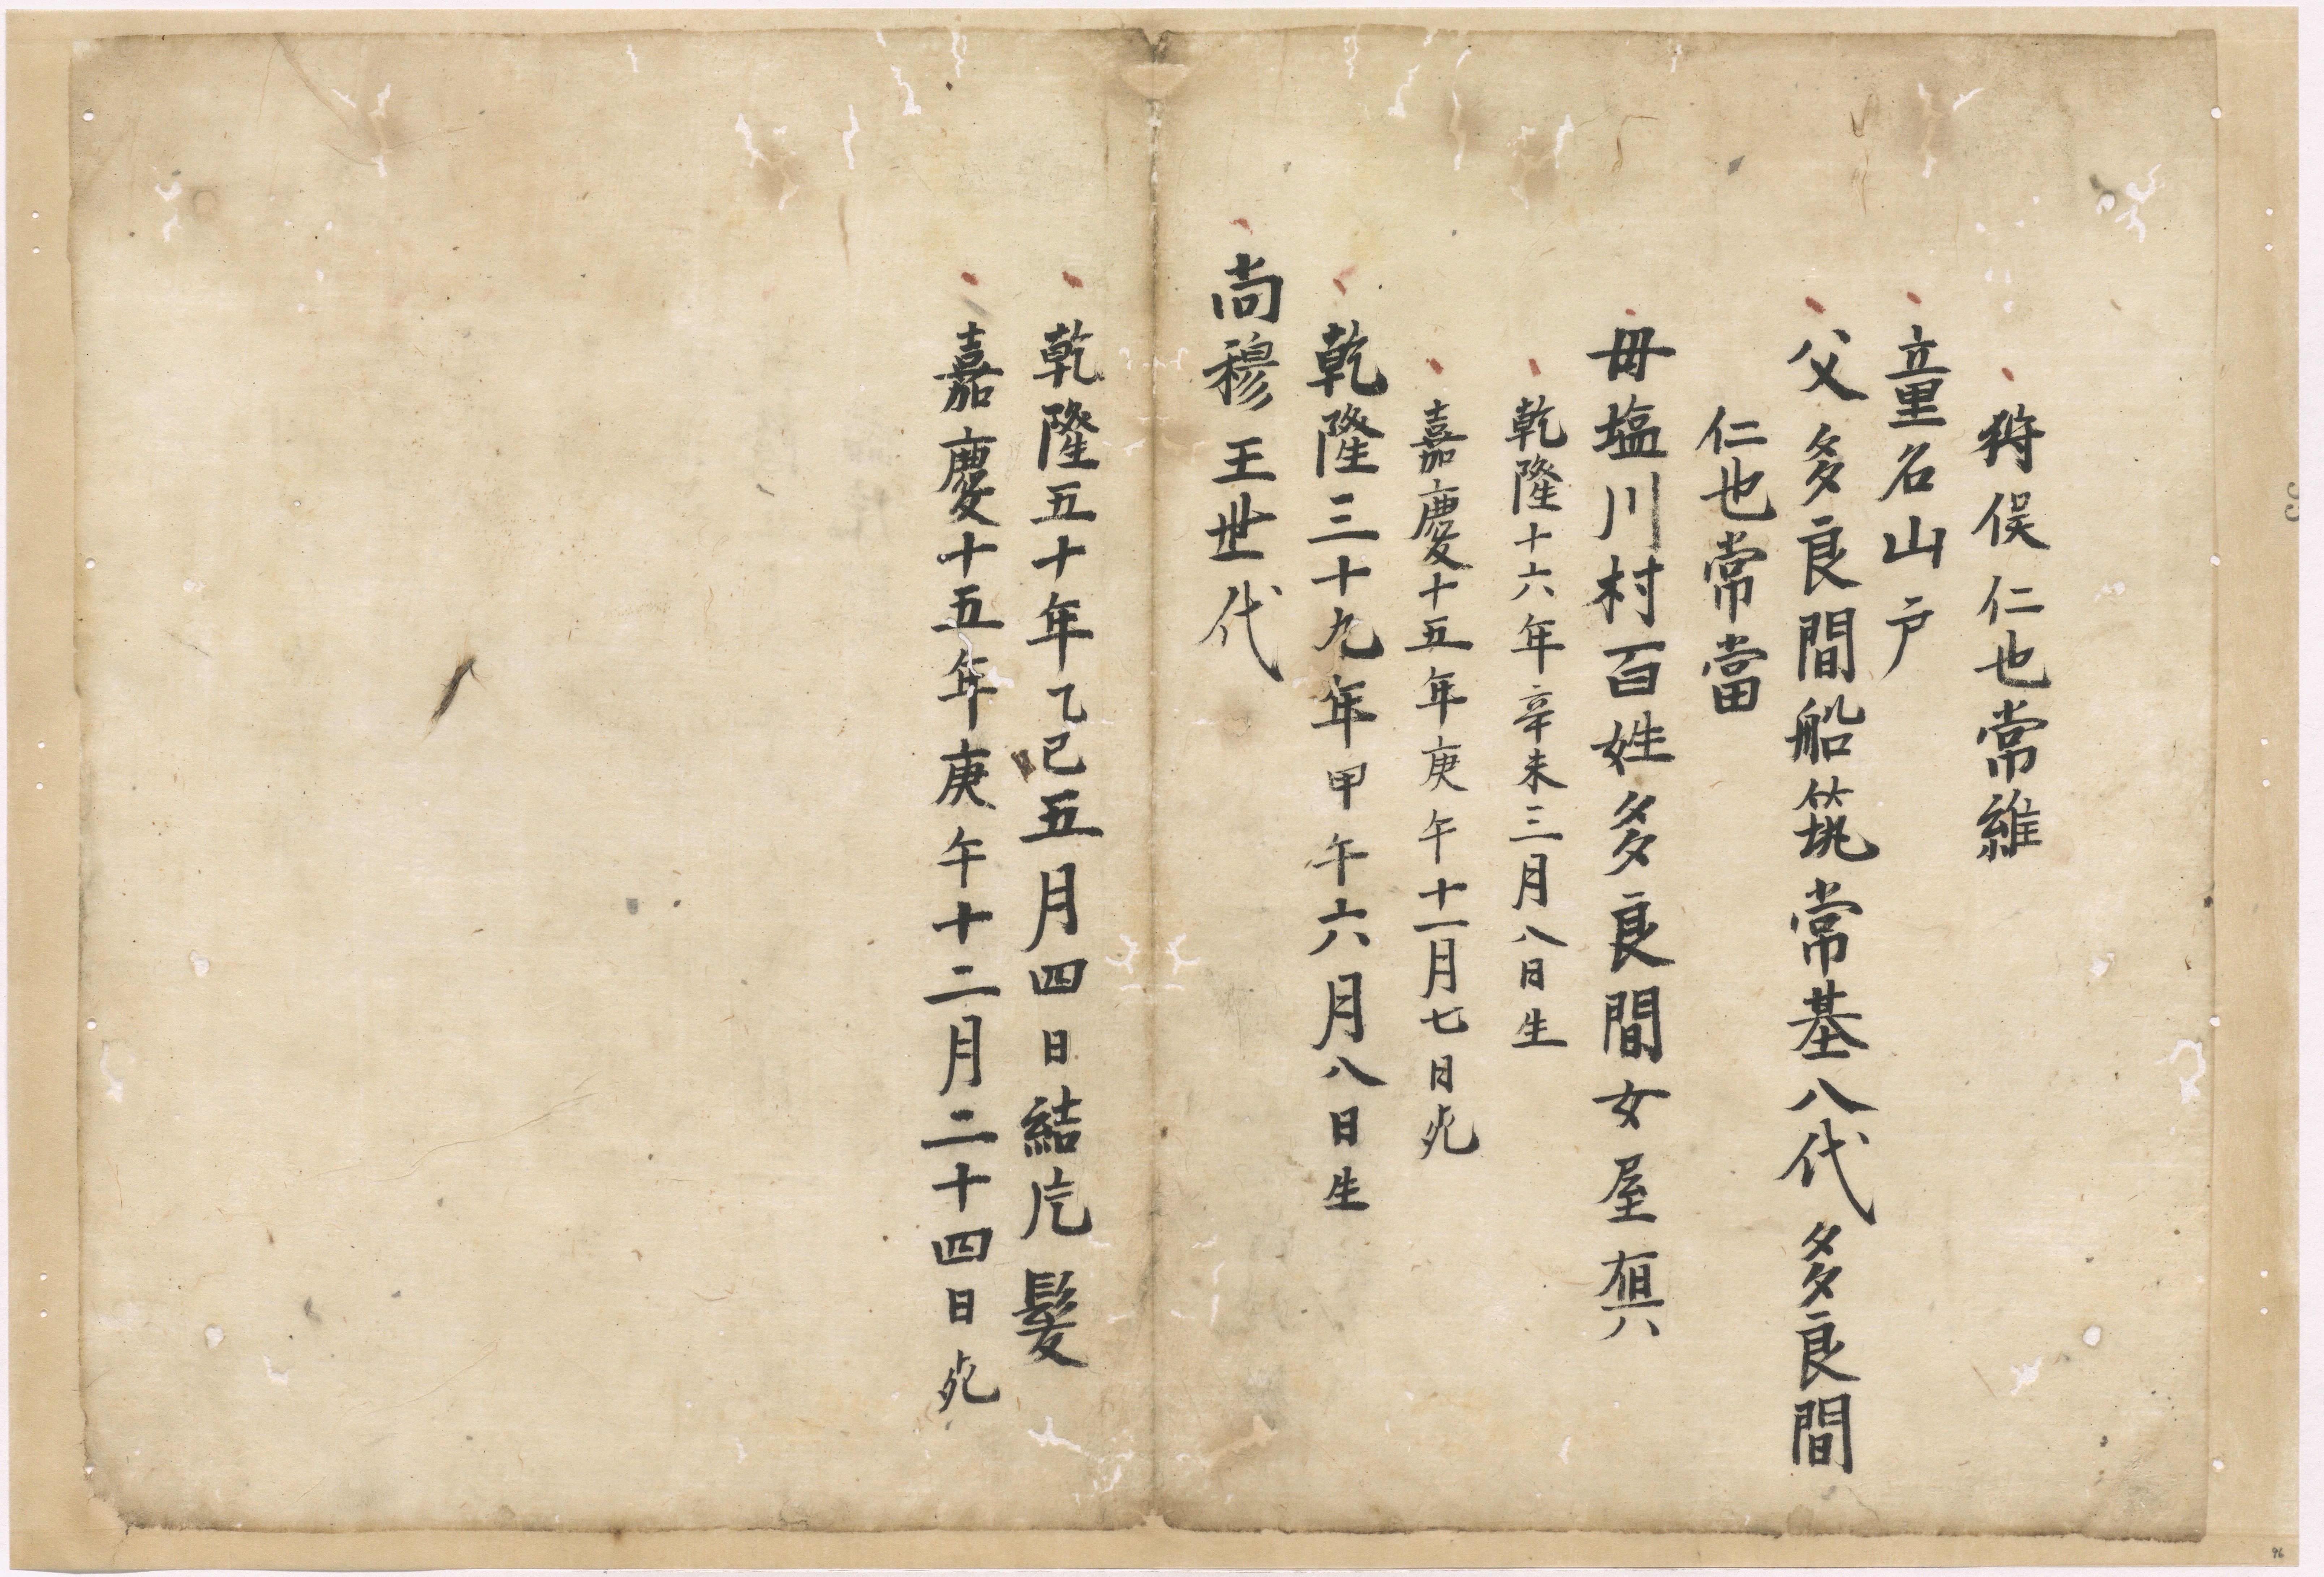 狩俣仁也常維
童名山戸
父多良間船筑常基八代多良間
仁也常當
毋塩川村百姓多良間女屋
乾隆十六年辛未三月八日生
嘉慶十五年庚午十一月七日死
乾隆三十九年甲午六月八日生
尚穆王世代
乾隆五十年乙巳五月四日結片髪
嘉慶十五年庚午十二月二十四日死
96